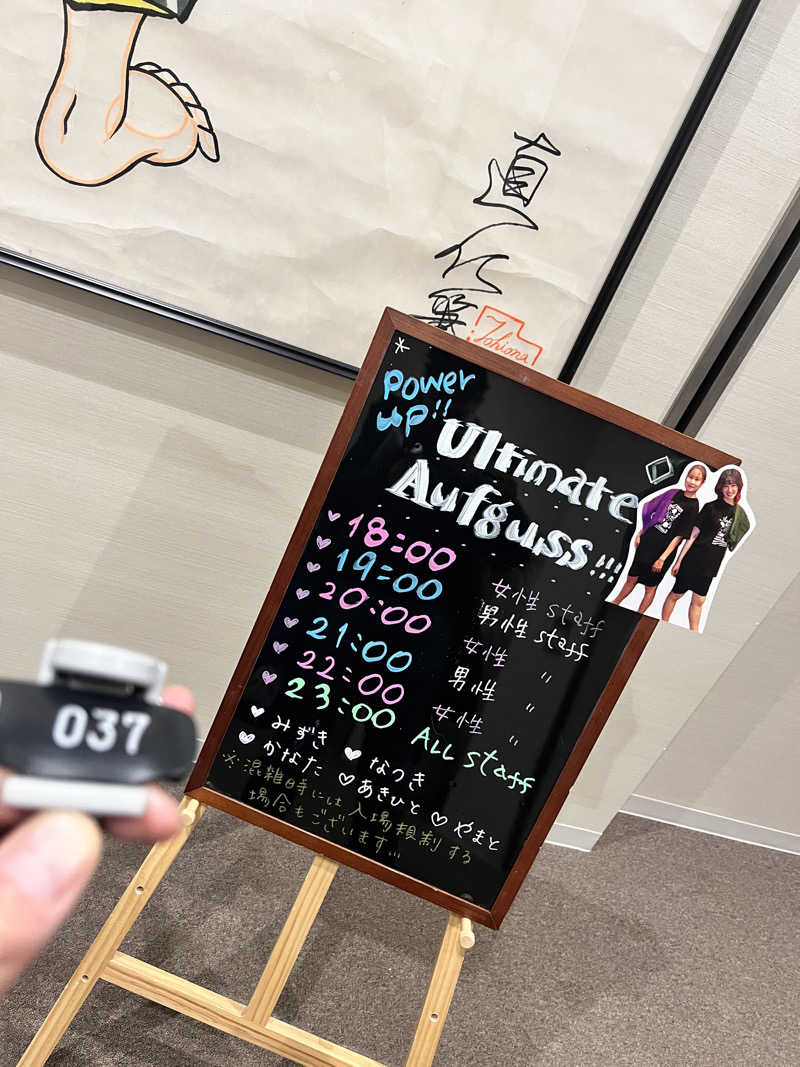 直
Power
up!!
Ultimate
Aufguss!!!
18:00 女性 staff
19:00 男性 staff
20:00 女性 〃
21:00 男性 〃
22:00 女性 〃
23:00 ALL staff
みずき なつき
かなた あきひと やまと
※混雑時には入場規制する
場合もございます…
037